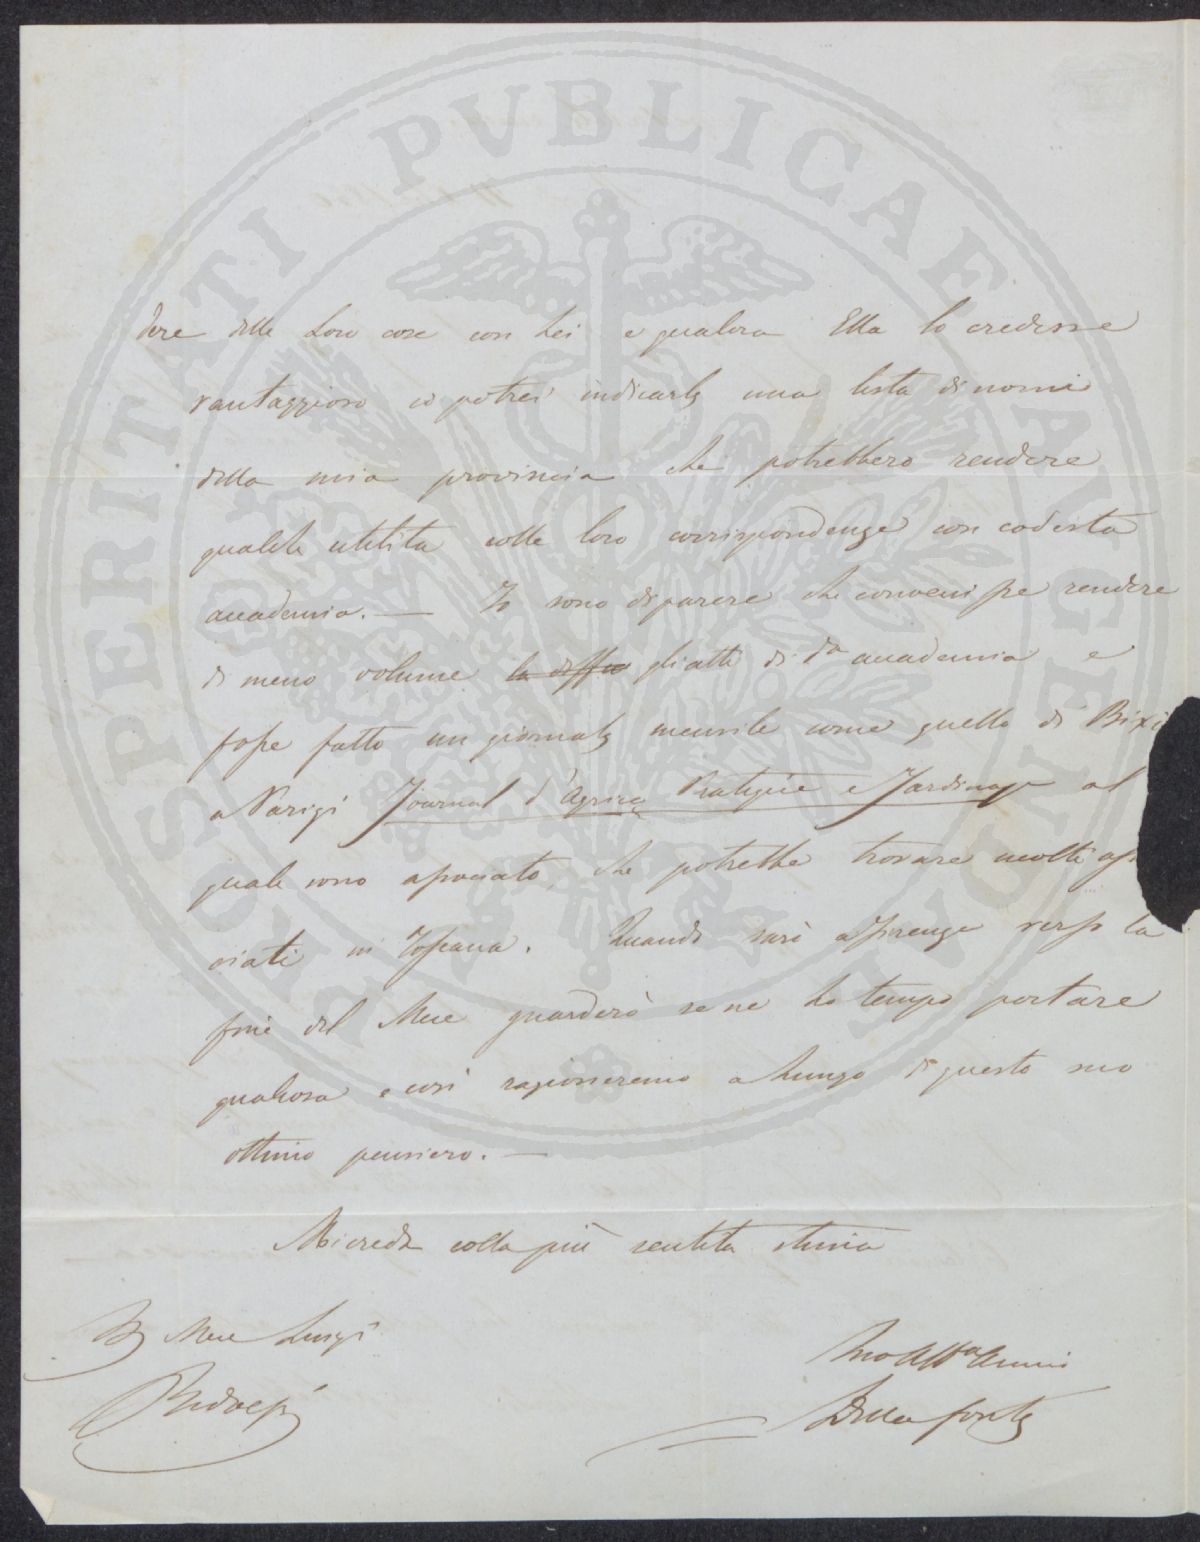 PROSPERITATI PVBLICAE AVGENDAE
dere delle Loro cose con Lei e qualora Ella lo credesse
vantaggioso io potrei indicarle una lista di nomi
della mia provincia che potrebbero rendere
qualche utilita colle loro corrispondenze con codesta
accademia. — Io sono di parere che convenisse rendere
di meno volume gli atti di da accademia e
fosse fatto un giornale mensile come quello di Bixi
a Parigi Journal d'Agrica Pratique e Jardinage al
quale sono associato, che potrebbe trovare molti as
ciati in Toscana. Quando sarò a Firenze verso la
fine del Mese guarderò se ne ho tempo portare
qualcosa e così ragioneremo a Lungo di questo suo
ottimo pensiero. —
Mi creda colla più sentita stima
Luigi
Ridolfi
Suo Amico